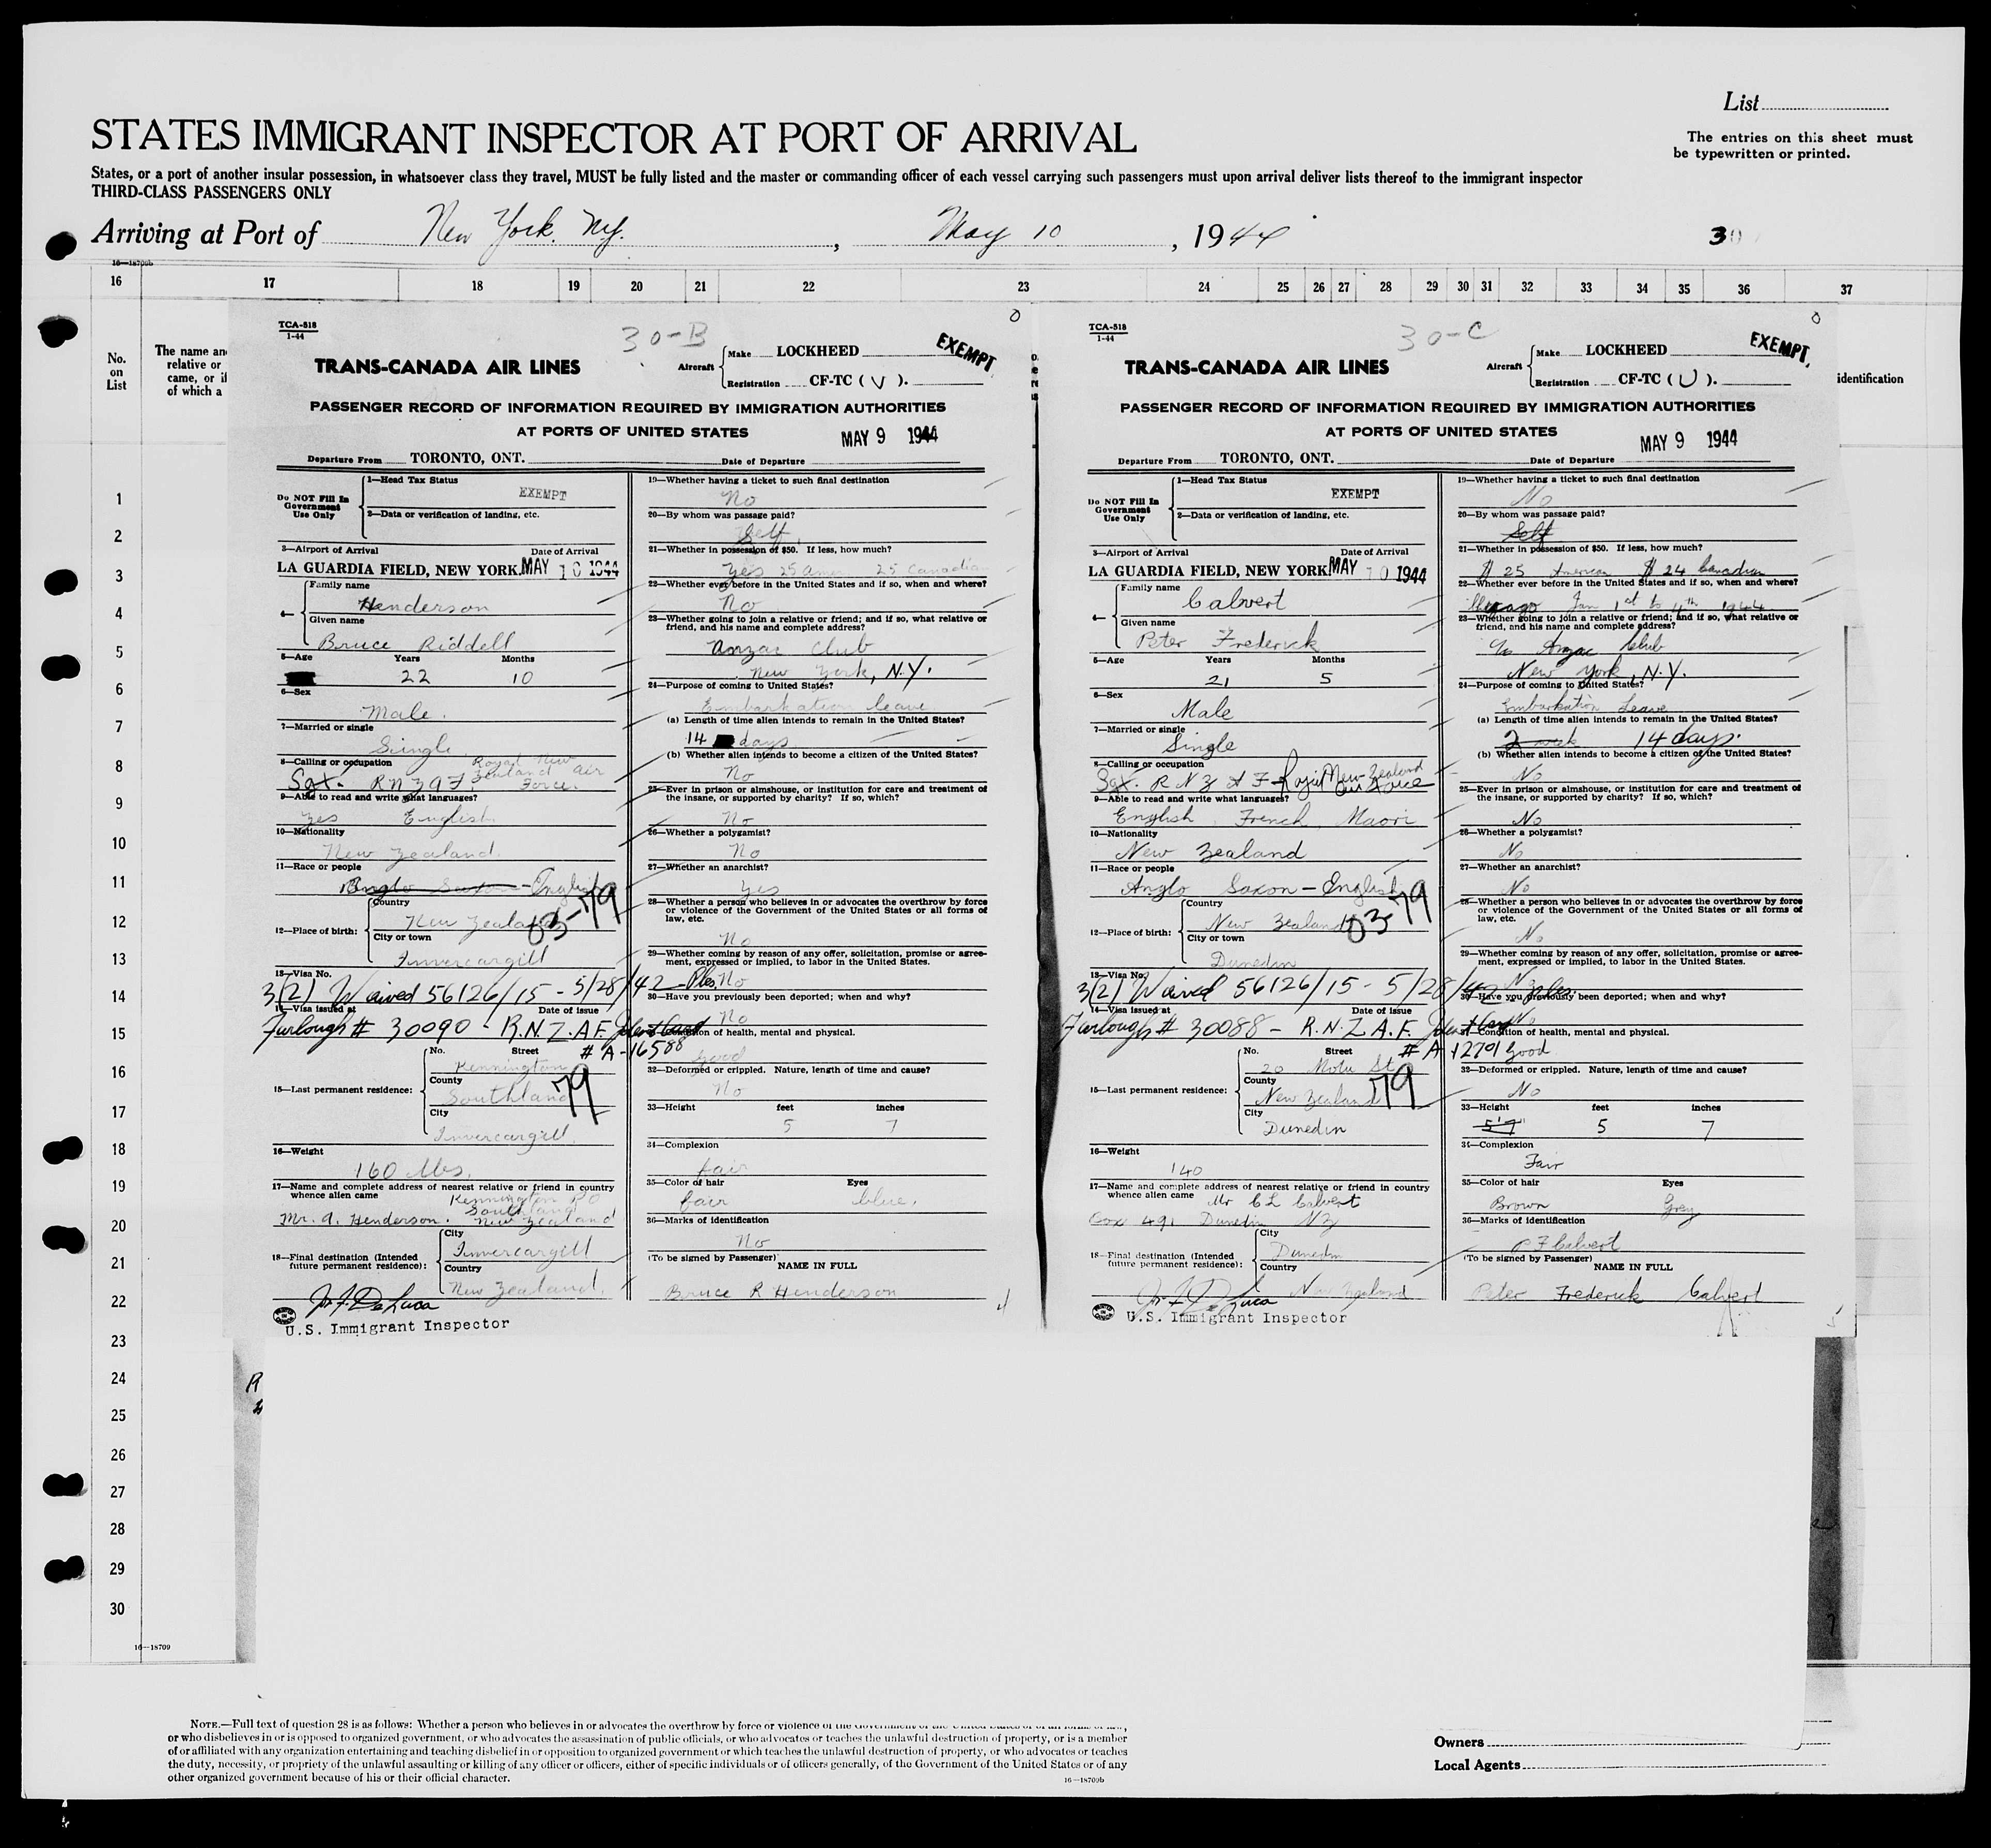 List
STATES IMMIGRANT INSPECTOR AT PORT OF ARRIVAL
The entries on this sheet must
be typewritten or printed.
States, or a port of another insular possession, in whatsoever class they travel, MUST be fully listed and the master or commanding officer of each vessel carrying such passengers must upon arrival deliver lists thereof to the immigrant inspector
THIRD-CLASS PASSENGERS ONLY
Arriving at Port of New York, N.Y., May 10, 1944
30
16—18709b
16 17 18 19 20 21 22 23 24 25 26 27 28 29 30 31 32 33 34 35 36 37
No.
on
List
The name an
relative or
came, or if
of which a
identification
1
2
3
4
5
6
7
8
9
10
11
12
13
14
15
16
17
18
19
20
21
22
23
24
25
26
27
28
29
30
16—18709
TCA-518
1-44
30-B
EXEMPT
TRANS-CANADA AIR LINES
Aircraft Make LOCKHEED
Registration CF-TC (V).
PASSENGER RECORD OF INFORMATION REQUIRED BY IMMIGRATION AUTHORITIES
AT PORTS OF UNITED STATES
MAY 9 1944
Departure From TORONTO, ONT. Date of Departure
Do NOT Fill In
Government
Use Only
1—Head Tax Status
EXEMPT
2—Data or verification of landing, etc.
3—Airport of Arrival Date of Arrival
LA GUARDIA FIELD, NEW YORK. MAY 10 1944
4—
Family name
Henderson
Given name
Bruce Riddell
5—Age Years Months
22 10
6—Sex
Male.
7—Married or single
Single
8—Calling or occupation
Royal New
Zealand Air
Force
Sgt. R N Z A F.
9—Able to read and write what languages?
Yes English
10—Nationality
New Zealand.
11—Race or people
Anglo Saxon - English
12—Place of birth:
Country
New Zealand
03-79
City or town
Invercargill
13—Visa No.
3(2) Waived 56126/15 - 5/28/42 - Ples.
14—Visa issued at Date of issue
Furlough # 30090 - R.N.Z.A.F. Ident Card
# A-16588
15—Last permanent residence:
No. Street
Kennington
County
Southland
79
City
Invercargill.
16—Weight
160 lbs.
17—Name and complete address of nearest relative or friend in country
whence alien came
Kennington P.O
Southland
Mr. A. Henderson. New Zealand
18—Final destination (Intended
future permanent residence):
City
Invercargill
Country
New Zealand.
U.S. Immigrant Inspector
19—Whether having a ticket to such final destination
No
20—By whom was passage paid?
Self.
21—Whether in possession of $50. If less, how much?
Yes 25 Amer 25 Canadian
22—Whether ever before in the United States and if so, when and where?
No
23—Whether going to join a relative or friend; and if so, what relative or
friend, and his name and complete address?
Anzac Club
New York, N.Y.
24—Purpose of coming to United States?
Embarkation leave
(a) Length of time alien intends to remain in the United States?
14 days
(b) Whether alien intends to become a citizen of the United States?
No
25—Ever in prison or almshouse, or institution for care and treatment of
the insane, or supported by charity? If so, which?
No
26—Whether a polygamist?
No
27—Whether an anarchist?
Yes
28—Whether a person who believes in or advocates the overthrow by force
or violence of the Government of the United States or all forms of
law, etc.
No
29—Whether coming by reason of any offer, solicitation, promise or agree-
ment, expressed or implied, to labor in the United States.
No
30—Have you previously been deported; when and why?
No
31—Condition of health, mental and physical.
Good
32—Deformed or crippled. Nature, length of time and cause?
No
33—Height feet inches
5 7
34—Complexion
fair
35—Color of hair Eyes
fair blue.
36—Marks of identification
No
(To be signed by Passenger)
NAME IN FULL
Bruce R Henderson
TCA-518
1-44
30-C
EXEMPT.
TRANS-CANADA AIR LINES
Aircraft Make LOCKHEED
Registration CF-TC (U).
PASSENGER RECORD OF INFORMATION REQUIRED BY IMMIGRATION AUTHORITIES
AT PORTS OF UNITED STATES
MAY 9 1944
Departure From TORONTO, ONT. Date of Departure
Do NOT Fill In
Government
Use Only
1—Head Tax Status
EXEMPT
2—Data or verification of landing, etc.
3—Airport of Arrival Date of Arrival
LA GUARDIA FIELD, NEW YORK. MAY 10 1944
4—
Family name
Calvert
Given name
Peter Frederick
5—Age Years Months
21 5
6—Sex
Male
7—Married or single
Single
8—Calling or occupation
Sgt. R N Z A F - Royal New Zealand
Air Force
9—Able to read and write what languages?
English French Maori
10—Nationality
New Zealand
11—Race or people
Anglo Saxon - English
12—Place of birth:
Country
New Zealand
03-79
City or town
Dunedin
13—Visa No.
3(2) Waived 56126/15 - 5/28/42 Ples.
14—Visa issued at Date of issue
Furlough # 30088 - R.N.Z.A.F. Ident Card
# A 12791
15—Last permanent residence:
No. Street
20 Motu St
County
New Zealand
79
City
Dunedin
16—Weight
140
17—Name and complete address of nearest relative or friend in country
whence alien came
Mr C L Calvert
Box 491 Dunedin NZ
18—Final destination (Intended
future permanent residence):
City
Dunedin
Country
New Zealand
U.S. Immigrant Inspector
19—Whether having a ticket to such final destination
No
20—By whom was passage paid?
Self
21—Whether in possession of $50. If less, how much?
$ 25 American $ 24 Canadian
22—Whether ever before in the United States and if so, when and where?
Chicago Jan 1st to 4th 1944
23—Whether going to join a relative or friend; and if so, what relative or
friend, and his name and complete address?
c/o Anzac Club
New York, N.Y.
24—Purpose of coming to United States?
Embarkation Leave
(a) Length of time alien intends to remain in the United States?
2 week 14 days.
(b) Whether alien intends to become a citizen of the United States?
No
25—Ever in prison or almshouse, or institution for care and treatment of
the insane, or supported by charity? If so, which?
No
26—Whether a polygamist?
No
27—Whether an anarchist?
No
28—Whether a person who believes in or advocates the overthrow by force
or violence of the Government of the United States or all forms of
law, etc.
No
29—Whether coming by reason of any offer, solicitation, promise or agree-
ment, expressed or implied, to labor in the United States.
No
30—Have you previously been deported; when and why?
No
31—Condition of health, mental and physical.
Good
32—Deformed or crippled. Nature, length of time and cause?
No
33—Height feet inches
5'7" 5 7
34—Complexion
Fair
35—Color of hair Eyes
Brown Grey
36—Marks of identification
P F Calvert
(To be signed by Passenger)
NAME IN FULL
Peter Frederick Calvert
NOTE.—Full text of question 28 is as follows: Whether a person who believes in or advocates the overthrow by force or violence of the Government of the United States or of all forms of law,
or who disbelieves in or is opposed to organized government, or who advocates the assassination of public officials, or who advocates or teaches the unlawful destruction of property, or is a member
of or affiliated with any organization entertaining and teaching disbelief in or opposition to organized government or which teaches the unlawful destruction of property, or who advocates or teaches
the duty, necessity, or propriety of the unlawful assaulting or killing of any officer or officers, either of specific individuals or of officers generally, of the Government of the United States or of any
other organized government because of his or their official character.
16—18709b
Owners
Local Agents